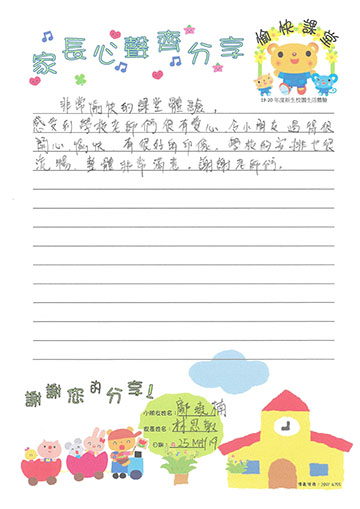 家長心聲齊分享
愉快課堂
19-20 年度新生校園生活體驗
非常愉快的課堂體驗。
感受到學校老師們很有愛心,令小朋友過得很
開心愉快,有很好的印像。學校的安排也很
流暢,整體非常滿意。謝謝老師們。
謝謝您的分享!
小朋友姓名:
家長姓名:林思敏
日期:25 MAY 19